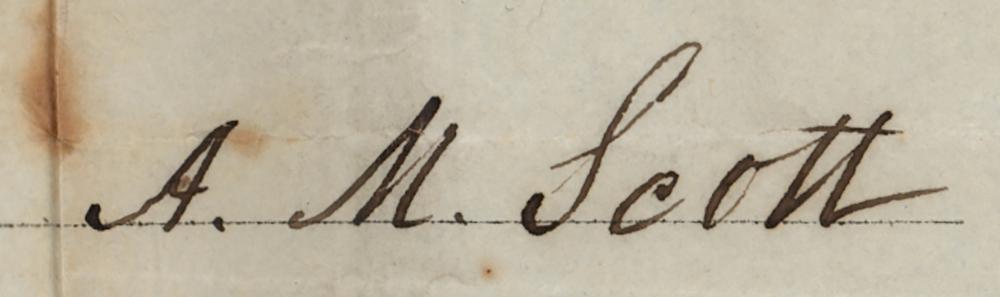 A. M. Scott